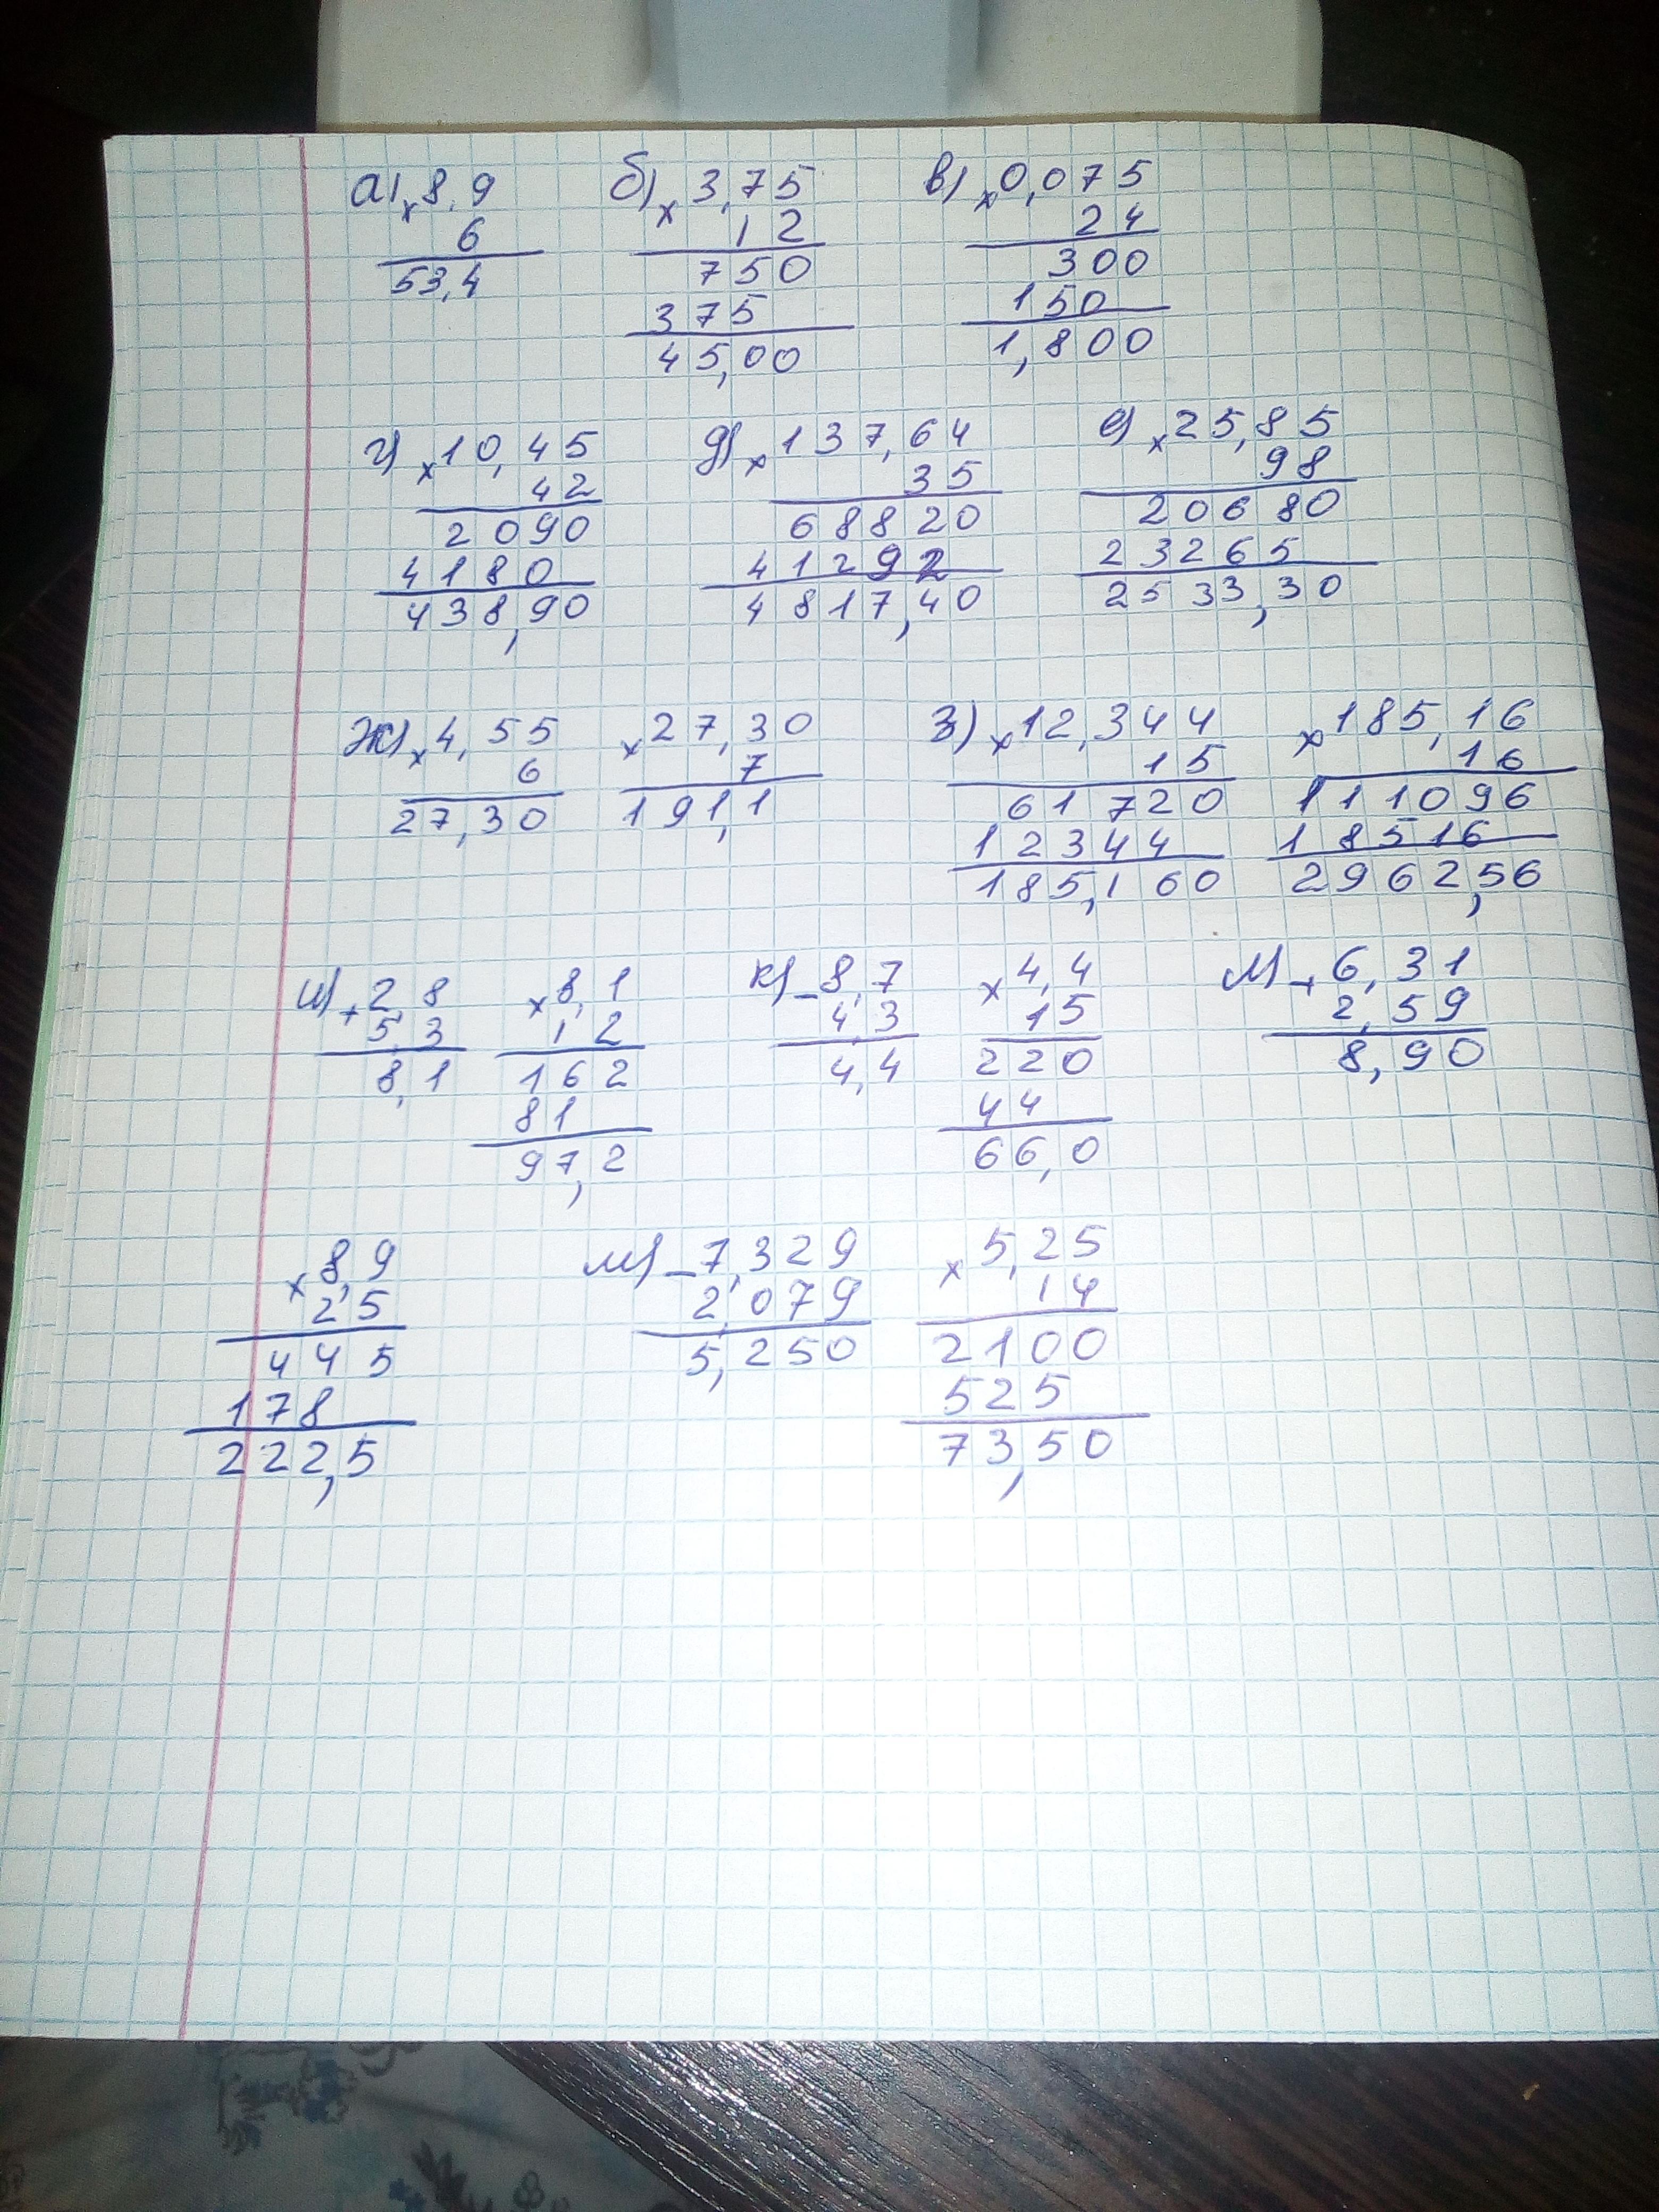 а) × 8,9 б) × 3,75 в) × 0,075
6 12 24
53,4 750 300
375 150
45,00 1,800
г) × 10,45 д) × 137,64 е) × 25,85
42 35 98
2090 68820 20680
4180 41292 23265
438,90 4817,40 2533,30
ж) × 4,55 × 27,30 з) × 12,344 × 185,16
6 7 15 16
27,30 191,1 61720 111096
12344 18516
185,160 2962,56
и) + 2,8 × 8,1 к) - 8,7 × 4,4 л) + 6,31
5,3 12 4,3 15 2,59
8,1 162 4,4 220 8,90
81 44
97,2 66,0
× 8,9 м) - 7,329 × 5,25
25 2,079 14
445 5,250 2100
178 525
222,5 73,50